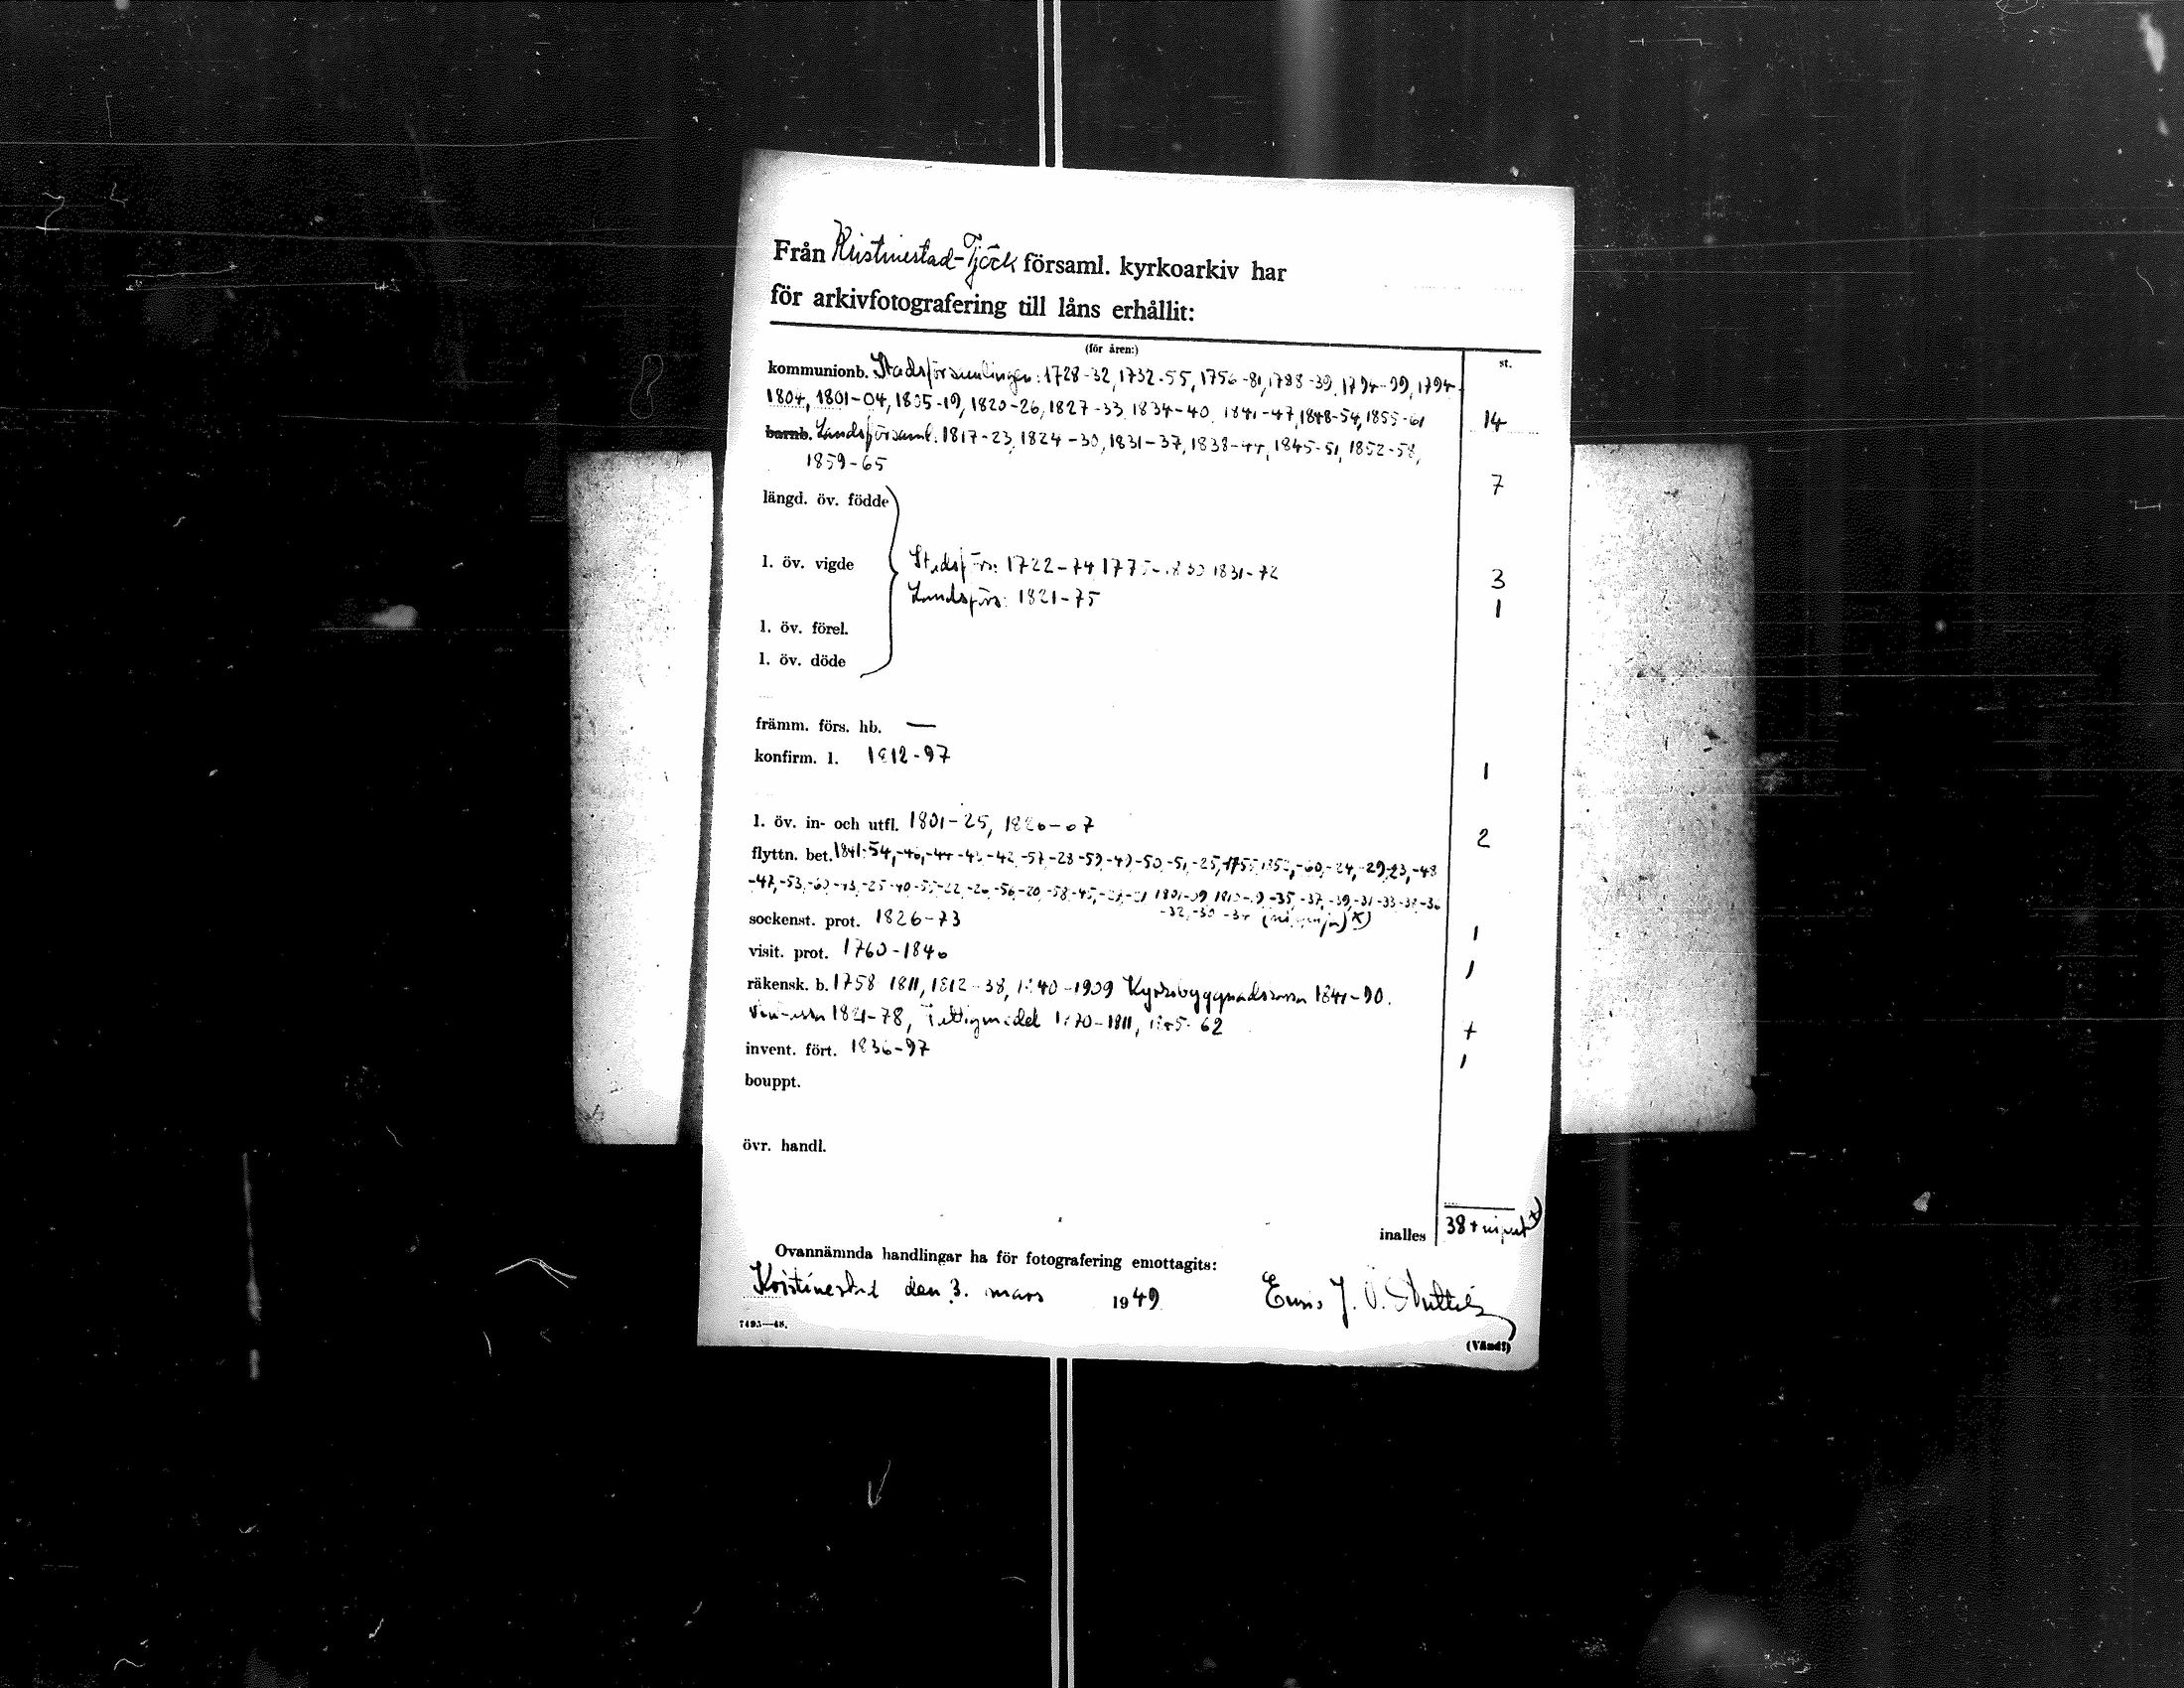 Från Kristinestad-Tjöck församl. kyrkoarkiv har
för arkivfotografering till låns erhållit:
(för åren:)
st.
kommunionb. Stadsförsamlingen: 1728-32, 1732-55, 1756-81, 1788-39, 1794-99, 1794-
1804, 1801-04, 1805-19, 1820-26, 1827-33, 1834-40, 1841-47, 1848-54, 1855-61 14
barnb. Landsförsaml: 1817-23, 1824-30, 1831-37, 1838-44, 1845-51, 1852-58,
1859-65 7
längd. öv. födde
l. öv. vigde Stadsförs: 1722-74 1831-72 3
Landsförs: 1821-75 1
l. öv. förel.
l. öv. döde
främm. förs. hb. —
konfirm. l. 1812-97 1
l. öv. in- och utfl. 1801-25, 2
flyttn. bet. 1841-54, -46, -44 -42, -57, -28 -59, -49 -50, -51, -25, -60, -24, -29, -23, -48
-47, -53, -35, -37, -39, -31 -33
-32,
sockenst. prot. 1826-73 1
visit. prot. 1760-1840 1
räkensk. b. 1758 1811, 1812-38, 1840-1909 Kyrkobyggnadskassan 1841-90.
1821-78, 1811, 62 4
invent. fört. 1836-97 1
bouppt.
övr. handl.
inalles 38 +
Ovannämnda handlingar ha för fotografering emottagits:
Kristinestad den 3. mars 1949
7493—48.
(Vänd!)